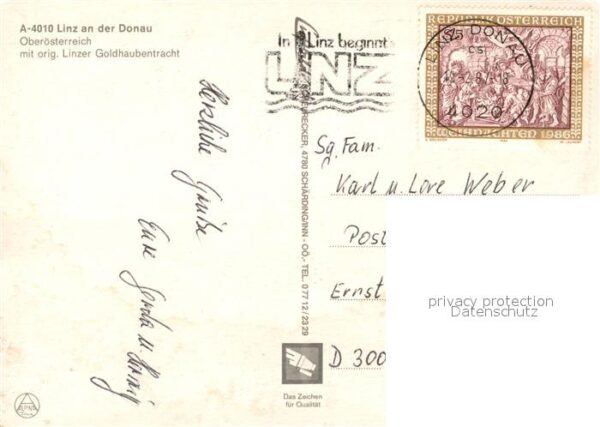 A-4010 Linz an der Donau
Oberösterreich
mit orig. Linzer Goldhaubentracht
Herzliche Grüße
Eure Gerda u.
In Linz beginnt's
LINZ
LINZ/DONAU
4020
REPUBLIK ÖSTERREICH
WEIHNACHTEN 1986
4780 SCHÄRDING/INN - OÖ.- TEL. 07712/2329
Sg. Fam.
Karl u. Lore Weber
Post
Ernst
D 300
privacy protection
Datenschutz
Das Zeichen
für Qualität